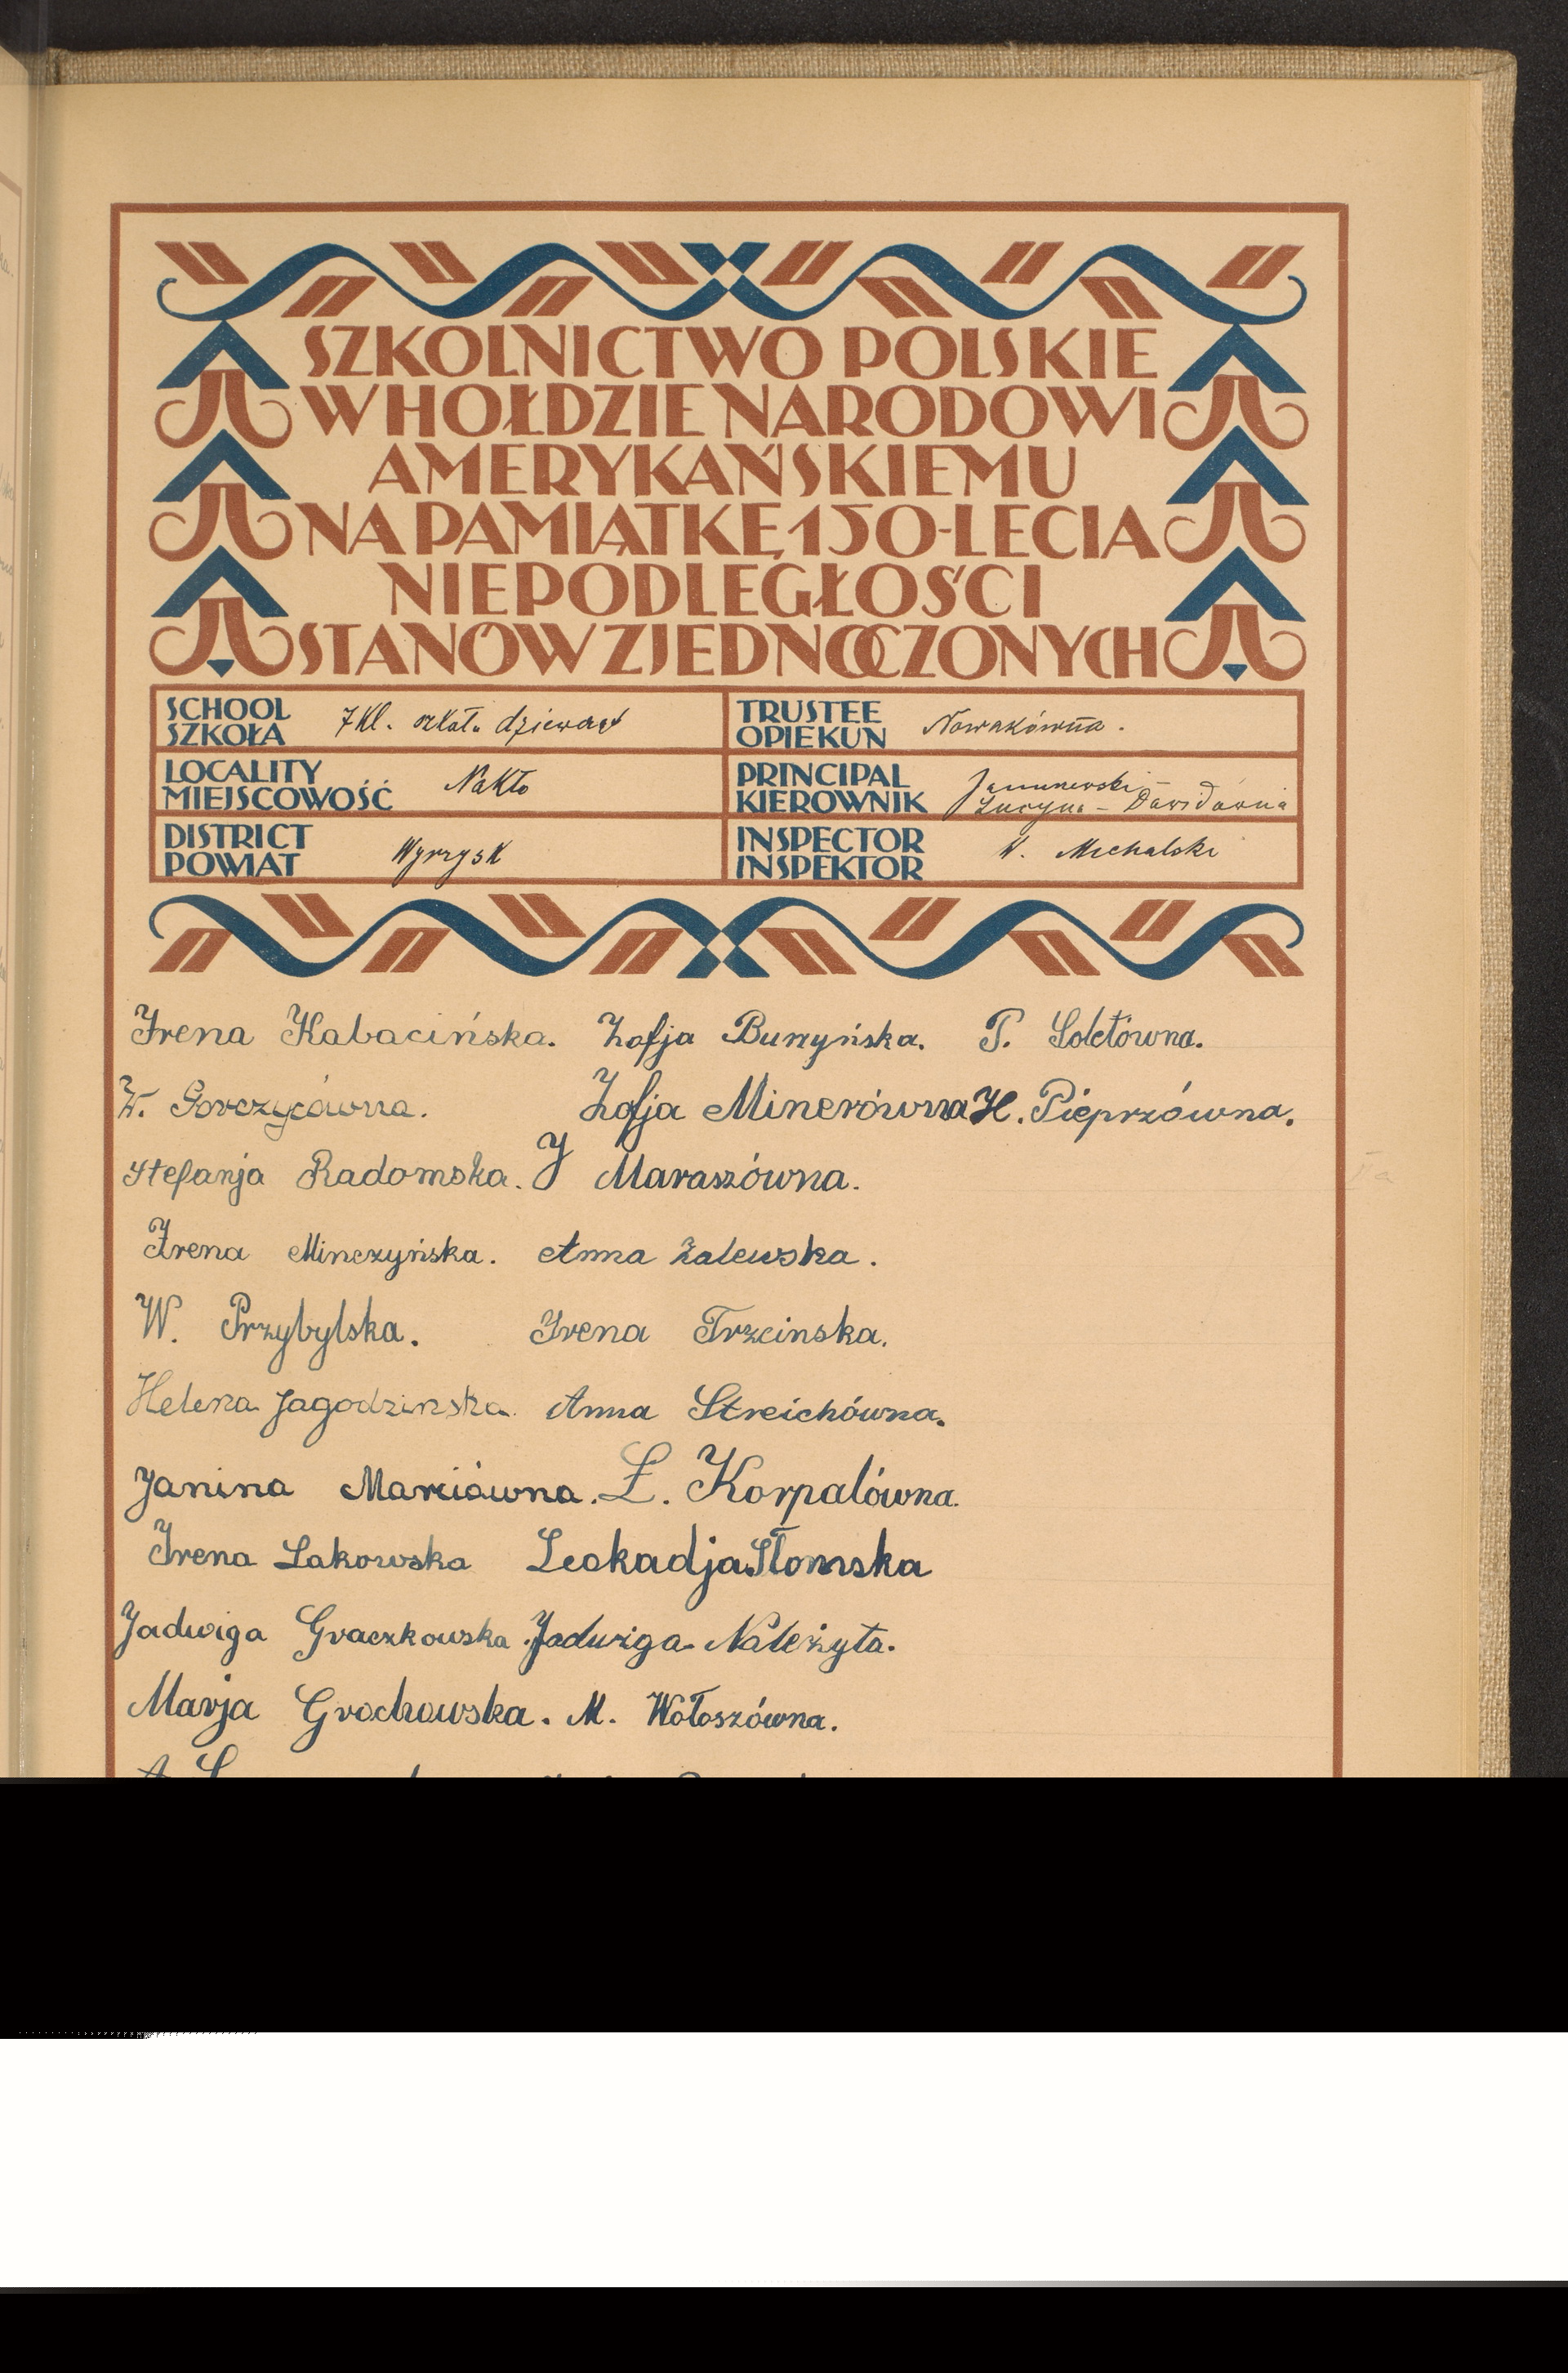 SZKOLNICTWO POLSKIE
W HOŁDZIE NARODOWI
AMERYKAŃSKIEMU
NA PAMIĄTKĘ 150-LECIA
NIEPODLEGŁOŚCI
STANÓW ZJEDNOCZONYCH
SCHOOL
SZKOŁA 7 kl. szkoł. dziewcząt
TRUSTEE
OPIEKUN Nowakówna.
LOCALITY
MIEJSCOWOŚĆ Nakło
PRINCIPAL
KIEROWNIK
Lucyna - Dawidówna
DISTRICT
POWIAT Wyrzysk
INSPECTOR
INSPEKTOR W. Michalski
Irena Kabacińska. Zofja Burzyńska. P. Soletówna.
W. Gorczycówna. Zofja Minerówna H. Pieprzówna.
Stefanja Radomska. J Maraszówna.
Irena Minczyńska. Anna Zalewska.
W. Przybylska. Irena Trzcinska.
Helena Jagodzinska. Anna Streichówna.
Janina Marciówna. Ł. Korpalówna.
Irena Lakowska Leokadja Słomska
Jadwiga Graczkowska. Jadwiga Należyta.
Marja Grochowska. M. Wołoszówna.